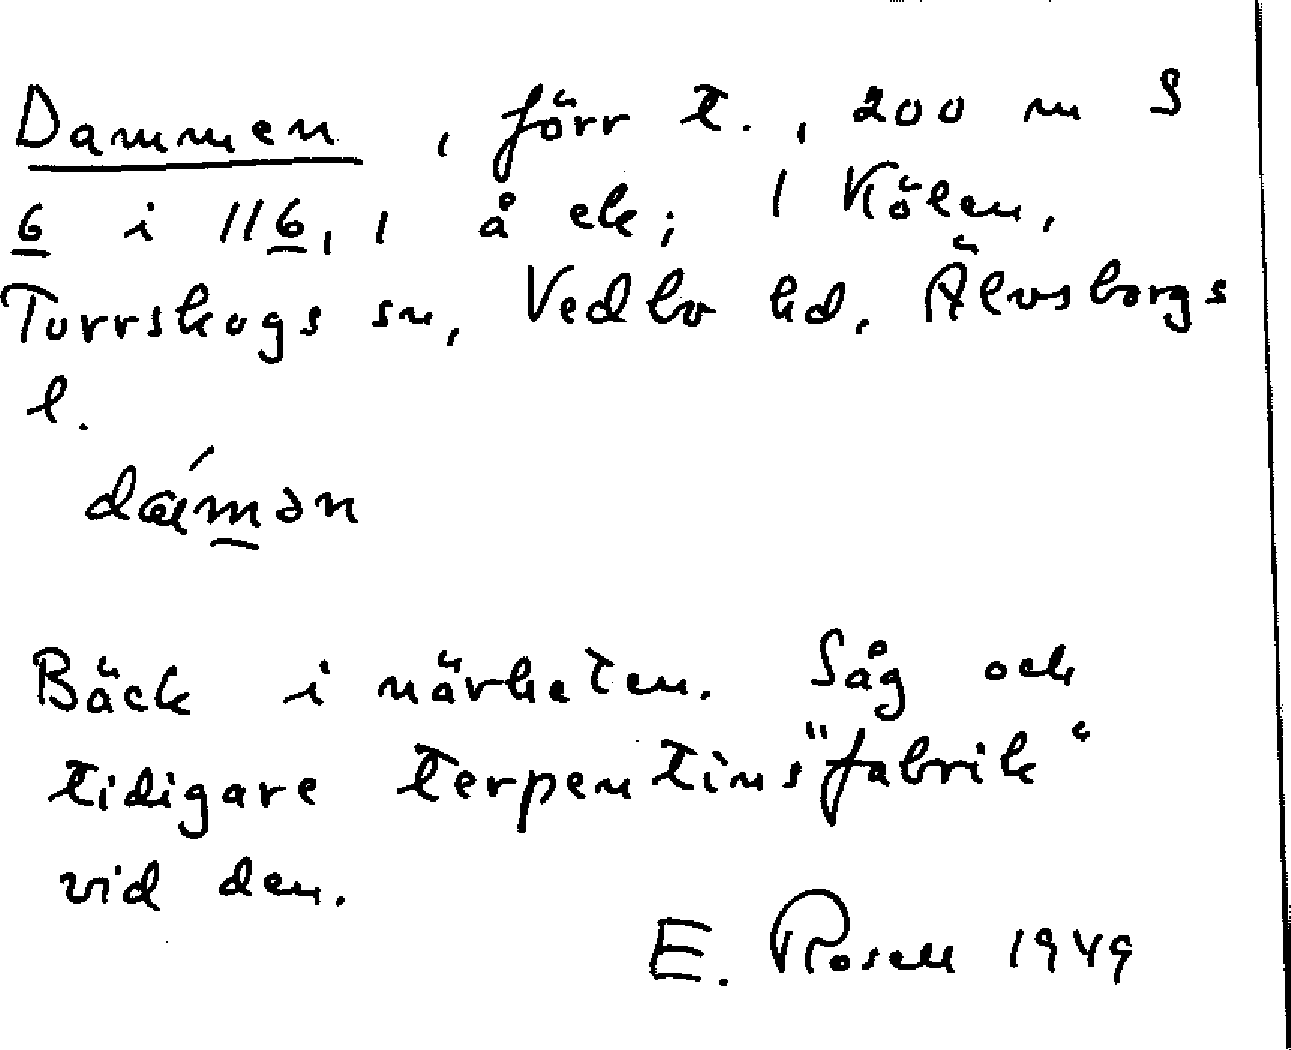 Dammen, förr t., 200 m S
6 i 116, 1 å ek; 1 Kölen,
Torrskogs sn, Vedbo hd, Älvsborgs
l.
dámən
Bäck i närheten. Såg och
tidigare terpentins"fabrik"
vid den.
E. Rosell 1949